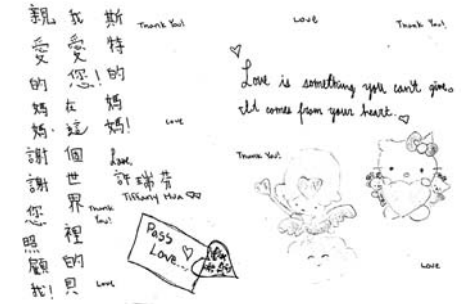 親愛的媽媽謝謝您照顧我!
我愛您!在這個世界裡的貝
斯特的媽媽!
Thank You!
Love
Love,
許瑞芳
Tiffany Hua
Thank
You!
Love
Pass
Love...
Love
Thank You!
Love is something you can't give.
It comes from your heart.
Thank You!
Love